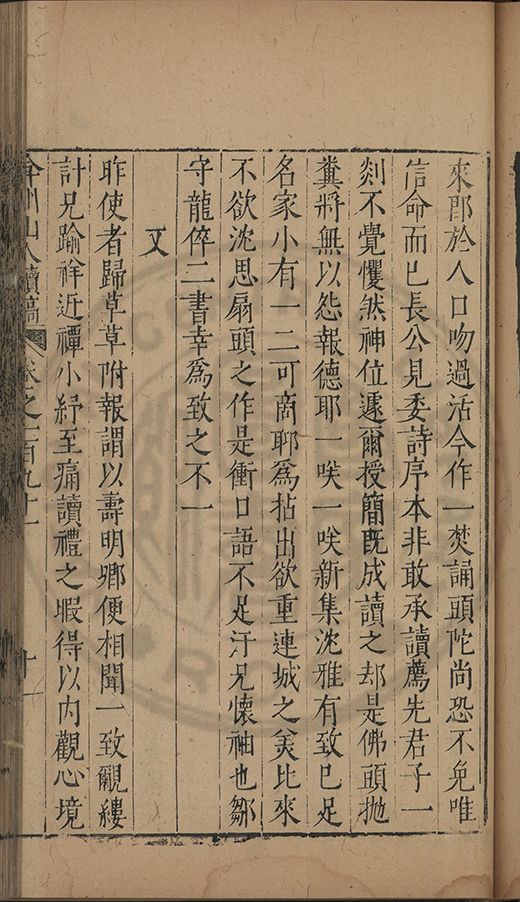 來郡於人口吻過活今作一焚誦頭陀尚恐不免唯
信命而已長公見委詩序本非敢承讀薦先君子一
剡不覺戄然神位遽爾授簡既成讀之却是佛頭拋
糞將無以怨報德耶一咲一咲新集沈雅有致已足
名家小有一二可商耶爲拈出欲重連城之美比來
不欲沈思扇頭之作是衝口語不足汗兄懷袖也鄒
守龍倅二書幸爲致之不一
又
昨使者歸草草附報謂以壽明卿便相聞一致覼縷
計兄踰祥近禫小紓至痛讀禮之暇得以内觀心境
弇州山人續稿 卷之一百九十一 十一